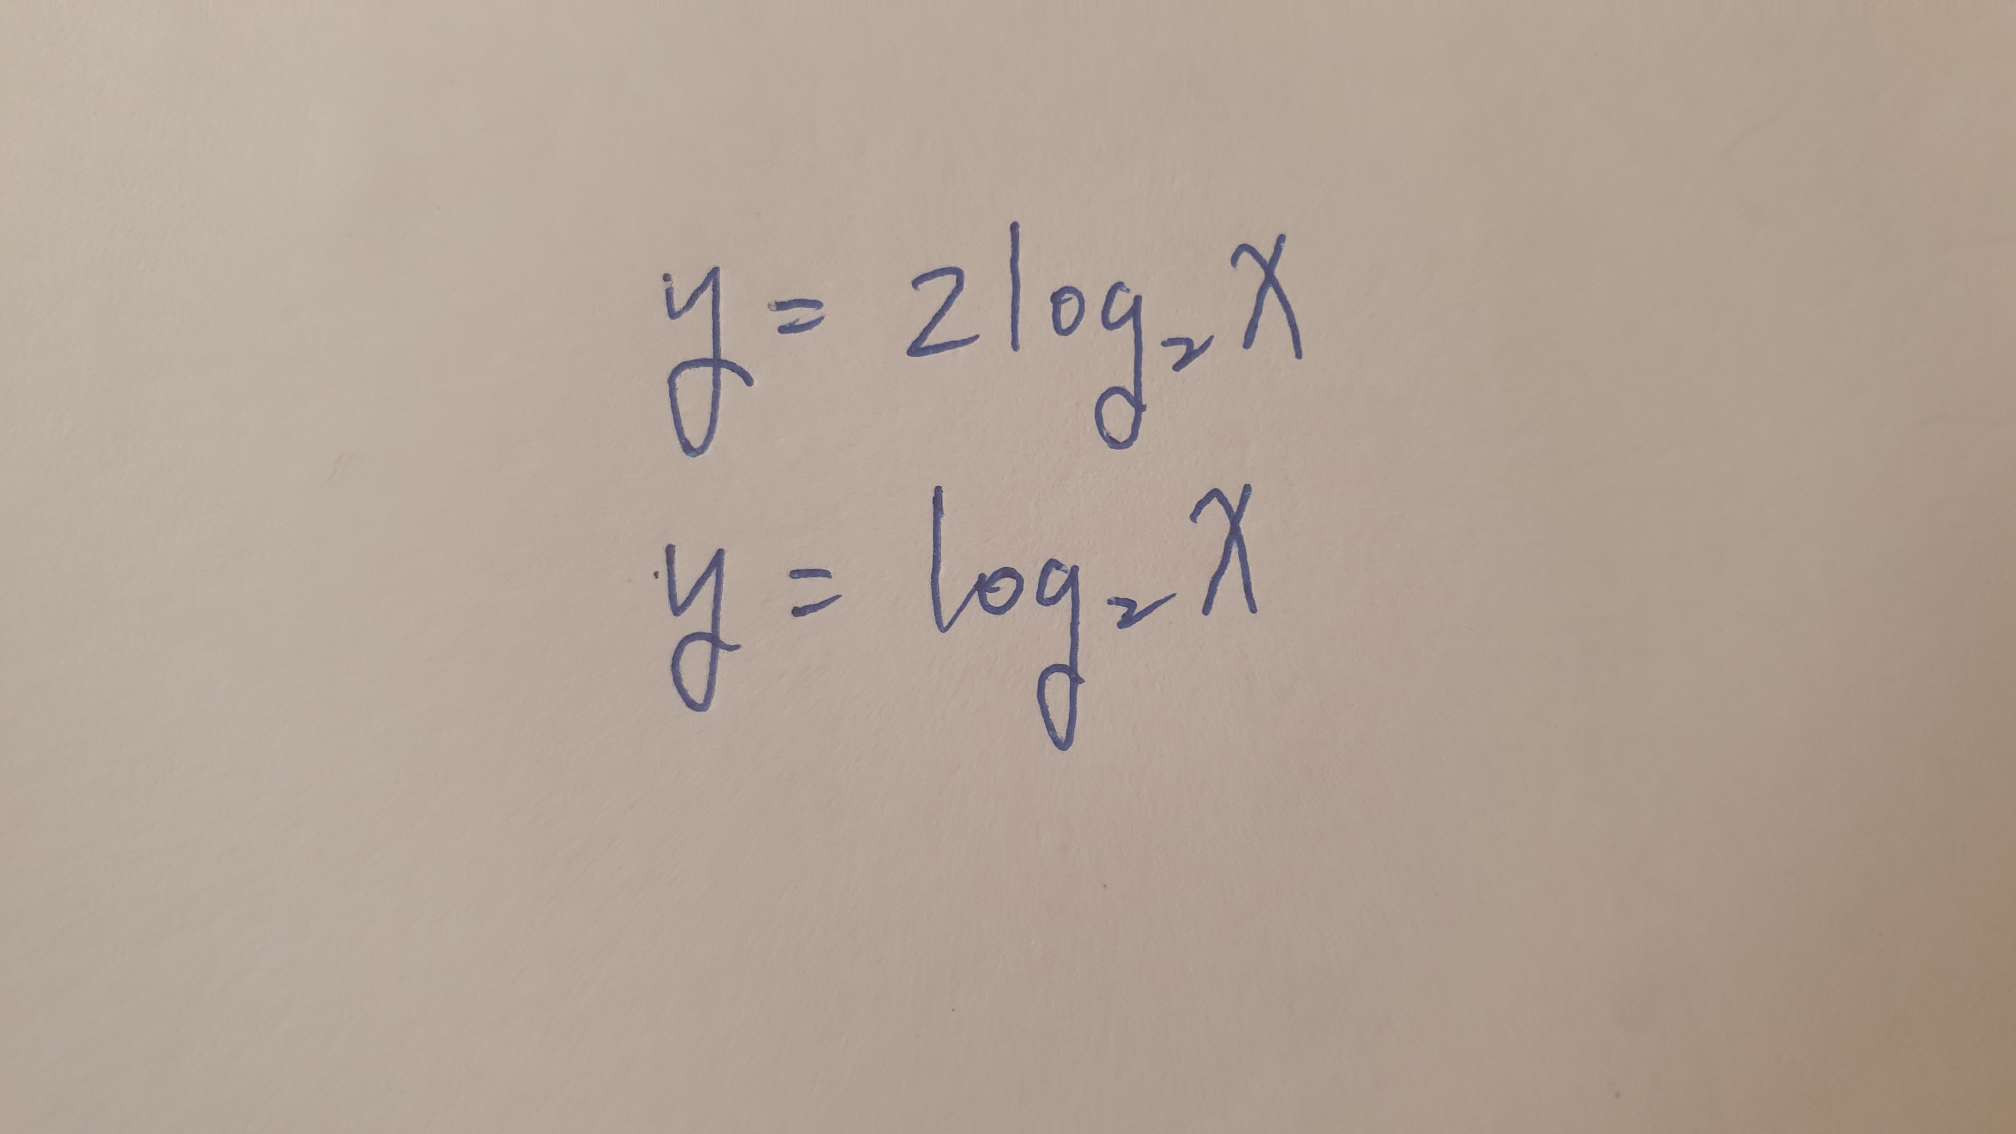 y = 2log₂x
y = log₂x